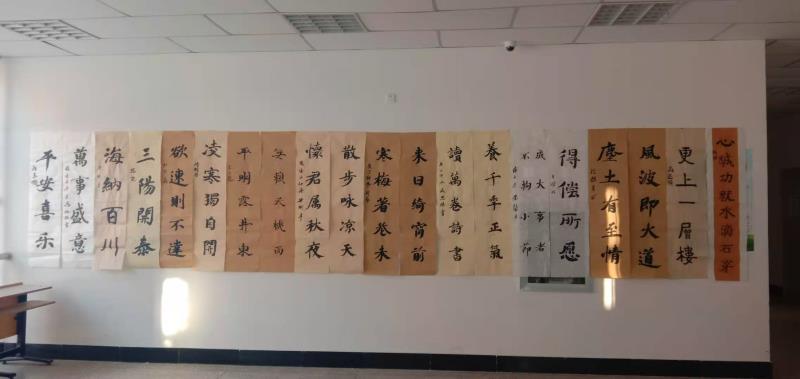 心诚功就水滴石穿
更上一層樓
風波即大道
塵土有至情
得偿所愿
成大事者
不拘小節
養千季正氣
讀萬卷詩書
来日绮窗前
寒梅著花未
散步咏凉天
懷君属秋夜
無賴夭桃面
平明露井東
凌寒獨自開
欲速則不達
三陽開泰
海納百川
萬事盛意
平安喜乐